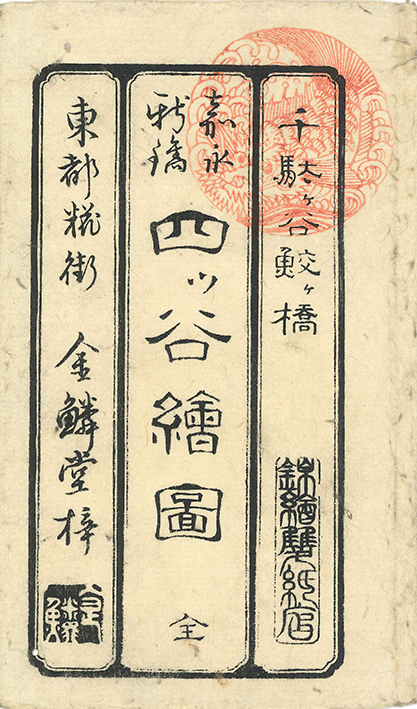 千駄ヶ谷鮫ヶ橋
錦繪雙紙店
嘉永
新鐫
四ッ谷繪圖
全
東都糀街
金鱗堂梓